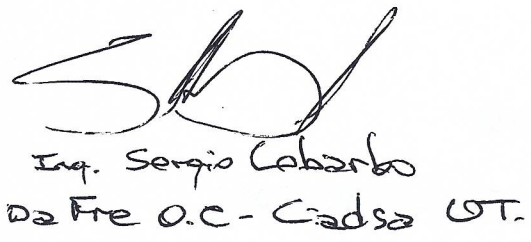 Ing. Sergio Labarbo
Da Fre O.C - Cadsa UT.